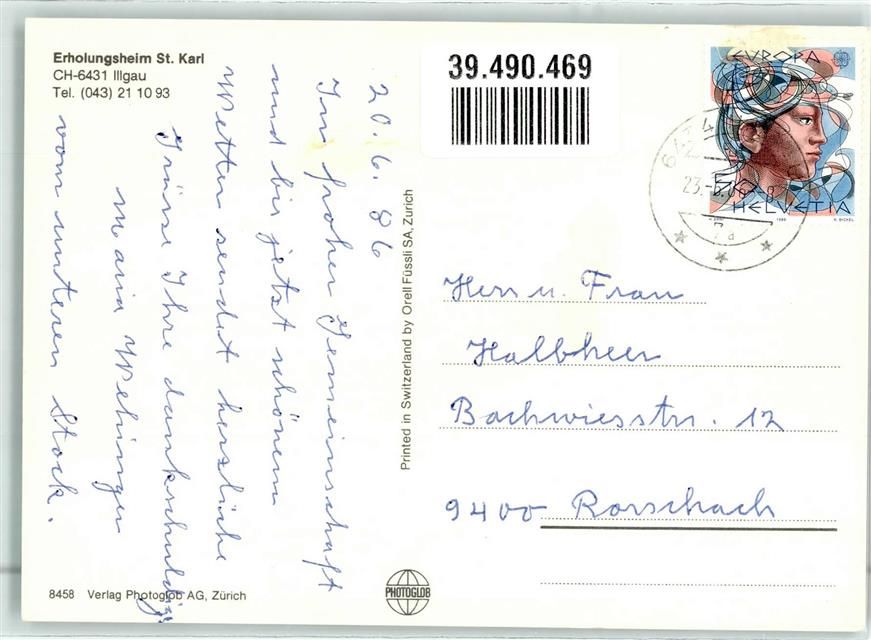 Erholungsheim St. Karl
CH-6431 Illgau
Tel. (043) 21 10 93
20. 6. 86
In froher Gemeinschaft
und bis jetzt schönem
Wetter sendet herzliche
Grüsse Ihre dankschuldig
Maria Wehinger
vom unteren Stock.
8458 Verlag Photoglob AG, Zürich
Printed in Switzerland by Orell Füssli SA, Zurich
PHOTOGLOB
39.490.469
EUROPA
50
HELVETIA
1986
Herr u. Frau
Halbheer
Bachwiesstr. 12
9400 Rorschach